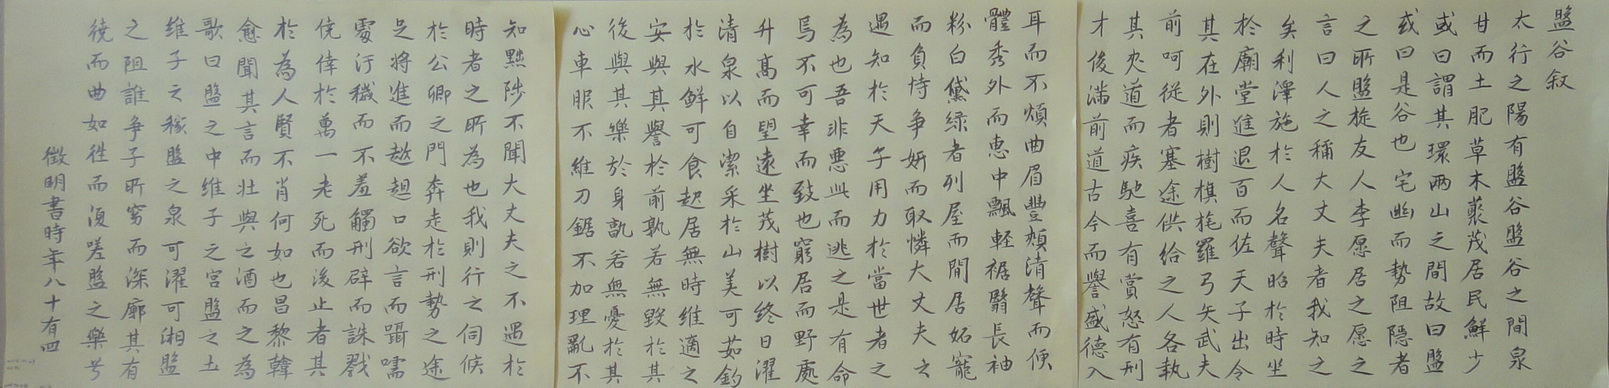 盤谷叙
太行之陽有盤谷盤谷之間泉
甘而土肥草木藂茂居民鮮少
或曰謂其環兩山之間故曰盤
或曰是谷也宅幽而勢阻隱者
之所盤旋友人李愿居之愿之
言曰人之稱大丈夫者我知之
矣利澤施於人名聲昭於時坐
於廟堂進退百而佐天子出令
其在外則樹棋旄羅弓矢武夫
前呵從者塞途供給之人各執
其夾道而疾馳喜有賞怒有刑
才後滿前道古今而譽盛德入
耳而不煩曲眉豐頰清聲而便
體秀外而惠中飄輕裾翳長袖
粉白黛綠者列屋而閒居妬寵
而負恃争妍而取憐大丈夫之
遇知於天子用力於當世者之
為也吾非悪此而逃之是有命
焉不可幸而致也窮居而野處
升高而望遠坐茂樹以終日濯
清泉以自潔采於山美可茹釣
於水鮮可食起居無時維適之
安與其譽於前孰若無毀於其
後與其樂於身孰若無憂於其
心車服不維刀鋸不加理亂不
知黜陟不聞大丈夫之不遇於
時者之所為也我則行之伺候
於公卿之門奔走於刑勢之途
足將進而趑趄口欲言而囁嚅
處汙穢而不羞觸刑辟而誅戮
僥倖於萬一老死而後止者其
於為人賢不肖何如也昌黎韓
愈聞其言而壯與之酒而之為
歌曰盤之中維子之宮盤之土
維子之稼盤之泉可濯可湘盤
之阻誰争子所窮而深廓其有
繞而曲如徃而復嗟盤之樂兮
徵明書時年八十有四